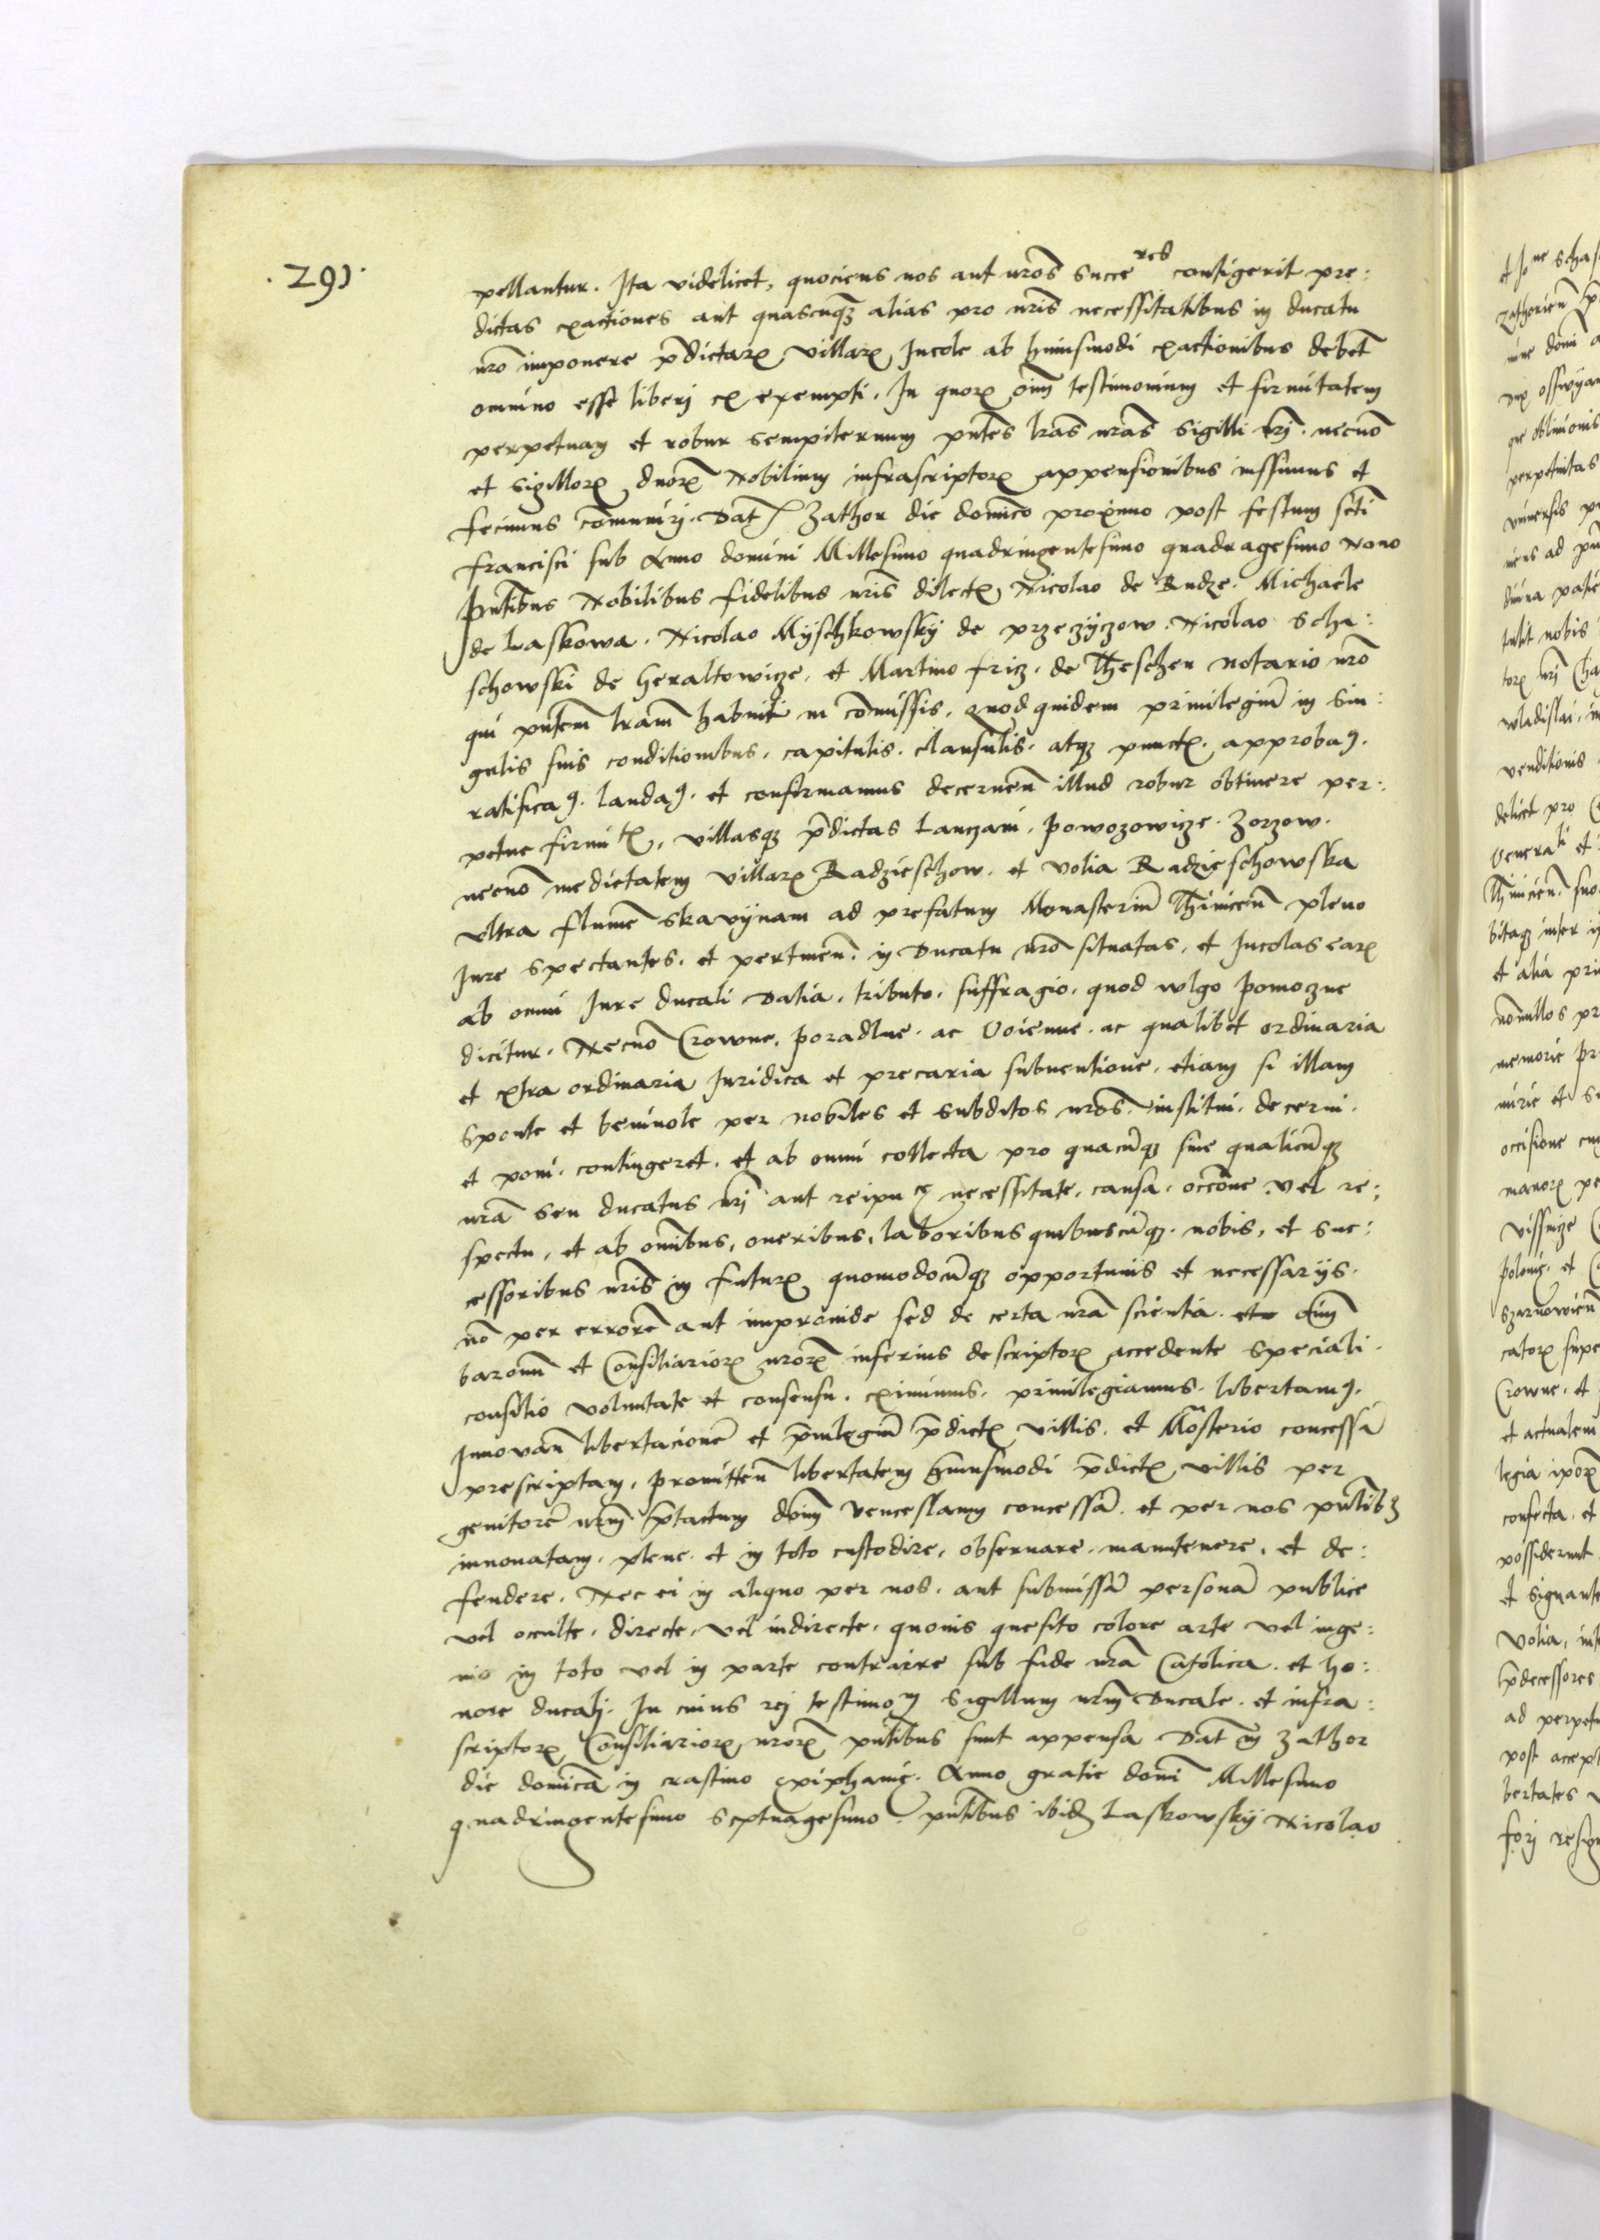 .291.
pellantur. Ita videlicet, quociens nos aut nr̃os succe res contigerit pre:
dictas exactiones aut quascuqꝫ alias pro nr̃is necessitatibus in ducatu
nr̃o imponere p̃dictarꝝ villarꝝ Incole ab huiusmodi exactionibus debet̃
omnino esse liberi et exempti. In quorꝝ oim̃ testimonium et firmitatem
perpetuam et robur sempiternum pn̄tes lr̃as nr̃as sigilli nr̃i. necno͂
et sigillorꝝ duorꝝ Nobilium infrascriptorꝝ appensionibus iussimus et
fecimus co͂muniri. Dat̃ Zathor die domi͂co proximo post festum scti͂
Francisci sub Anno domini Millesimo quadringentesimo quadragesimo Nono
Pn̄tibus Nobilibus fidelibus nr̃is dilectꝭ Nicolao de Rudze. Michaele
de Laskowa. Nicolao Myschkowsky de przeziczow. Nicolao Scha:
schowski de Heraltowicze. et Martino fricz. de Theschen notario nr̃o
qui pn̄tem lr̃am habuit in co͂missis. Quod quidem priuilegiu͂ in sin:
gulis suis conditionibus. capitulis. clausulis. atqꝫ punctꝭ. approbaꝯ.
ratificaꝯ. laudaꝯ. et confirmamus decernen͂ illud robur obtinere per:
petue firmi tꝭ. villasqꝫ p̃dictas Lanczani. Powozowicze. Zorzow.
necno͂ medietatem villarꝝ Radzieschow. et Volia Radzieschowska
vltra flume͂ Skavynam ad prefatum Monasteriu͂ Thinicen͂ pleno
Iure spectantes. et pertinen͂. in Ducatu nr̃o situatas. et Incolas earꝝ
ab omni Iure ducali Datia. tributo. suffragio. quod wlgo Pomoczne
dicitur. Necno͂ Crowne. Poradlne. ac Voienne. ac qualibet ordinaria
et extra ordinaria Iuridica et precaria subuentione. etiam si illam
sponte et beniuole per nobiles et subditos nr̃os institui. decerni.
et poni. contingeret. et ab omni collecta pro quacu͂qꝫ siue qualicu͂qꝫ
nr̃a seu ducatus nr̃i aut reipu ce necessitate. causa. occo͂ne vel re:
spectu. et ab omi͂bus. oneribus. laboribus quibuscu͂qꝫ. nobis. et suc:
cessoribus nr̃is in futurꝝ quomodocu͂qꝫ opportunis et necessarijs.
no͂ per errore͂ aut improuide sed de certa nr̃a scientia. oi͂m
baronu͂ et Consiliariorꝝ nr̃orꝝ inferius descriptorꝝ accedente speciali.
consilio voluntate et consensu. eximimus. priuilegiamus. libertamꝯ.
Innouan͂ libertacione͂ et p̃uilegiu͂ p̃dictꝭ villis. et Mo͂sterio concessa͂
prescriptam. promitten͂ libertatem huiusmodi p̃dictꝭ villis per
genitore͂ nr̃m p̃tactum do͂m Venceslaum concessa͂. et per nos pn̄tibꝫ
innouatam. plene. et in toto custodire. obseruare. manutenere. et de:
fendere. Nec ei in aliquo per nos. aut submissa͂ persona͂ publice
vel oculte. directe. vel indirecte. quouis quesito colore arte vel inge:
nio in toto vel in parte contraire sub fide nr̃a Catolica. et ho:
nore ducali. In cuius rei testimoꝫ Sigillum nr̃m Ducale. et infra:
scriptorꝝ Consiliariorꝝ nr̃orꝝ pn̄tibus sunt appensa Dat̃ in Zathor
die domi͂ca in crastino Epiphanie. Anno gratie domi͂ Millesimo
quadringentesimo septuagesimo. pn̄tibus ibid͂ Laskowsky Nicolao